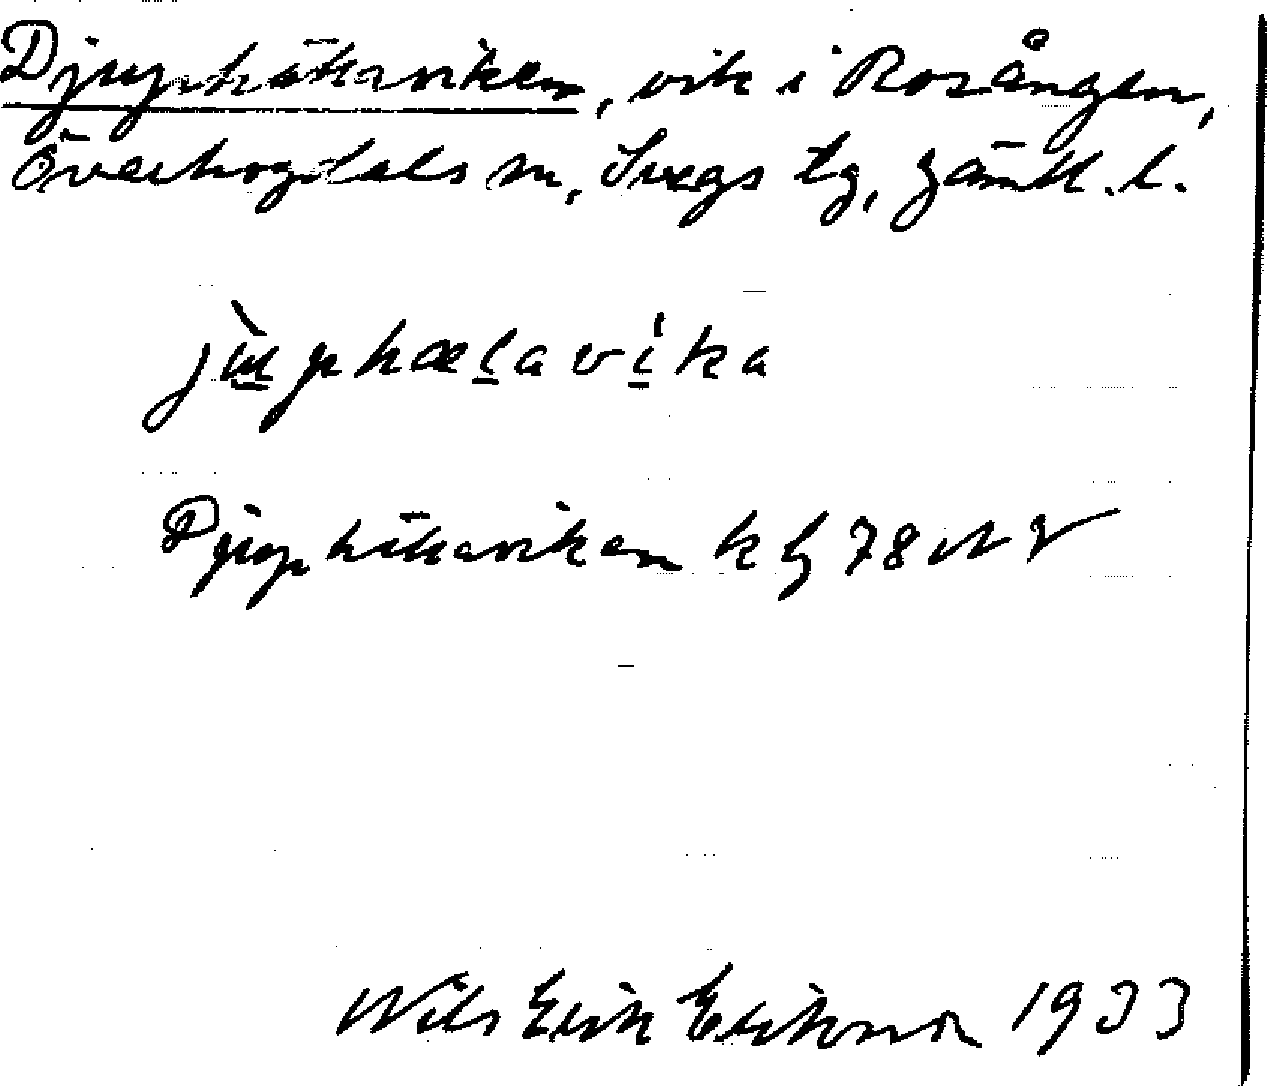 Djuphälaviken, vik i Rosången,
Överhogdals sn, Svegs tg, Jämtl. l.
jùphælavika
Djuphälaviken k bl 78 NV
Nils Erik Eriksson 1933